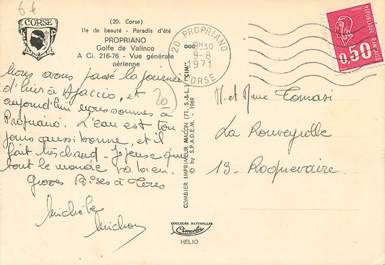 6 f
CORSE
(20. Corse)
Ile de beauté - Paradis d'été
PROPRIANO
Golfe de Valinco
A Ci. 216-76 - Vue générale
aérienne
20 PROPRIANO
9-8
1971
CORSE
POSTES
0,50
Nous avons passé la journée
d'hier à Ajaccio, et
aujourd'hui nous sommes à
Propriano. L'eau est tou
jours aussi bonne, et il
fait très chaud. Je pense que
tout le monde va bien.
Grosses Bises à tous
Michèle
Michou
20
COMBIER IMPRIMEUR MACON (71. S.-&-L.) "CIM"
© by S.P.A.D.E.M. - 1969
M. et Mme Tomasi
La Rouveyrolle
13 - Roquevaire
COULEURS NATURELLES
Cimcolor
HELIO